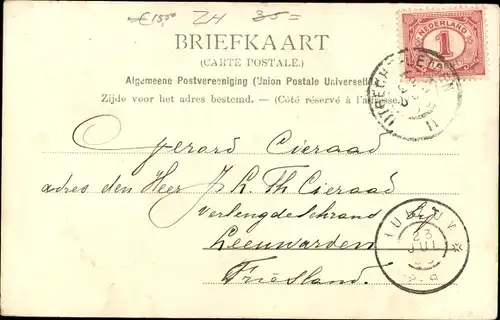 €15,00 ZH 35=
BRIEFKAART
(CARTE POSTALE.)
Algemeene Postvereeniging (Union Postale Universelle)
Zijde voor het adres bestemd. — (Côté réservé à l'adresse.)
NEDERLAND
1
CENT
Gerard Cieraad
adres den Heer J. L. Th. Cieraad
Verlengde Schrans bij
Leeuwarden
Friesland.
23
JUL